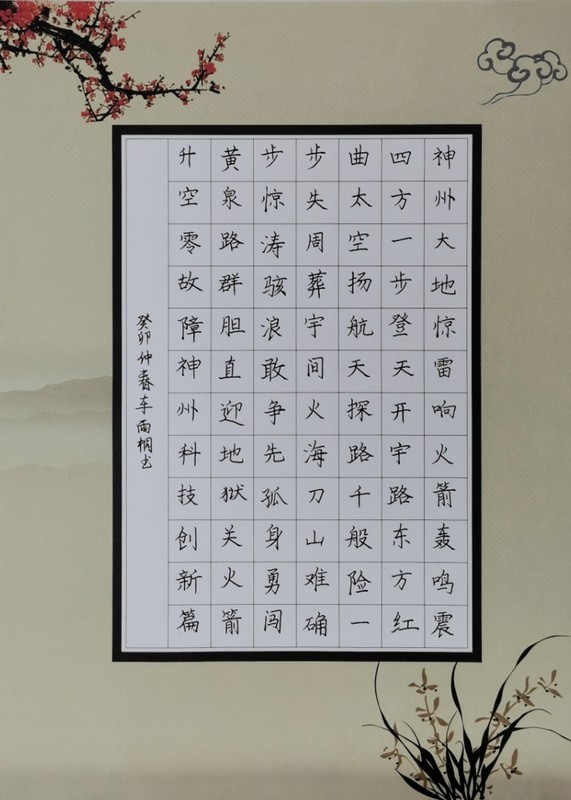 神州大地惊雷响火箭轰鸣震
四方一步登天开宇路东方红
曲太空扬航天探路千般险一
步失周葬宇间火海刀山难确
步惊涛骇浪敢争先孤身勇闯
黄泉路群胆直迎地狱关火箭
升空零故障神州科技创新篇
癸卯仲春车雨桐书